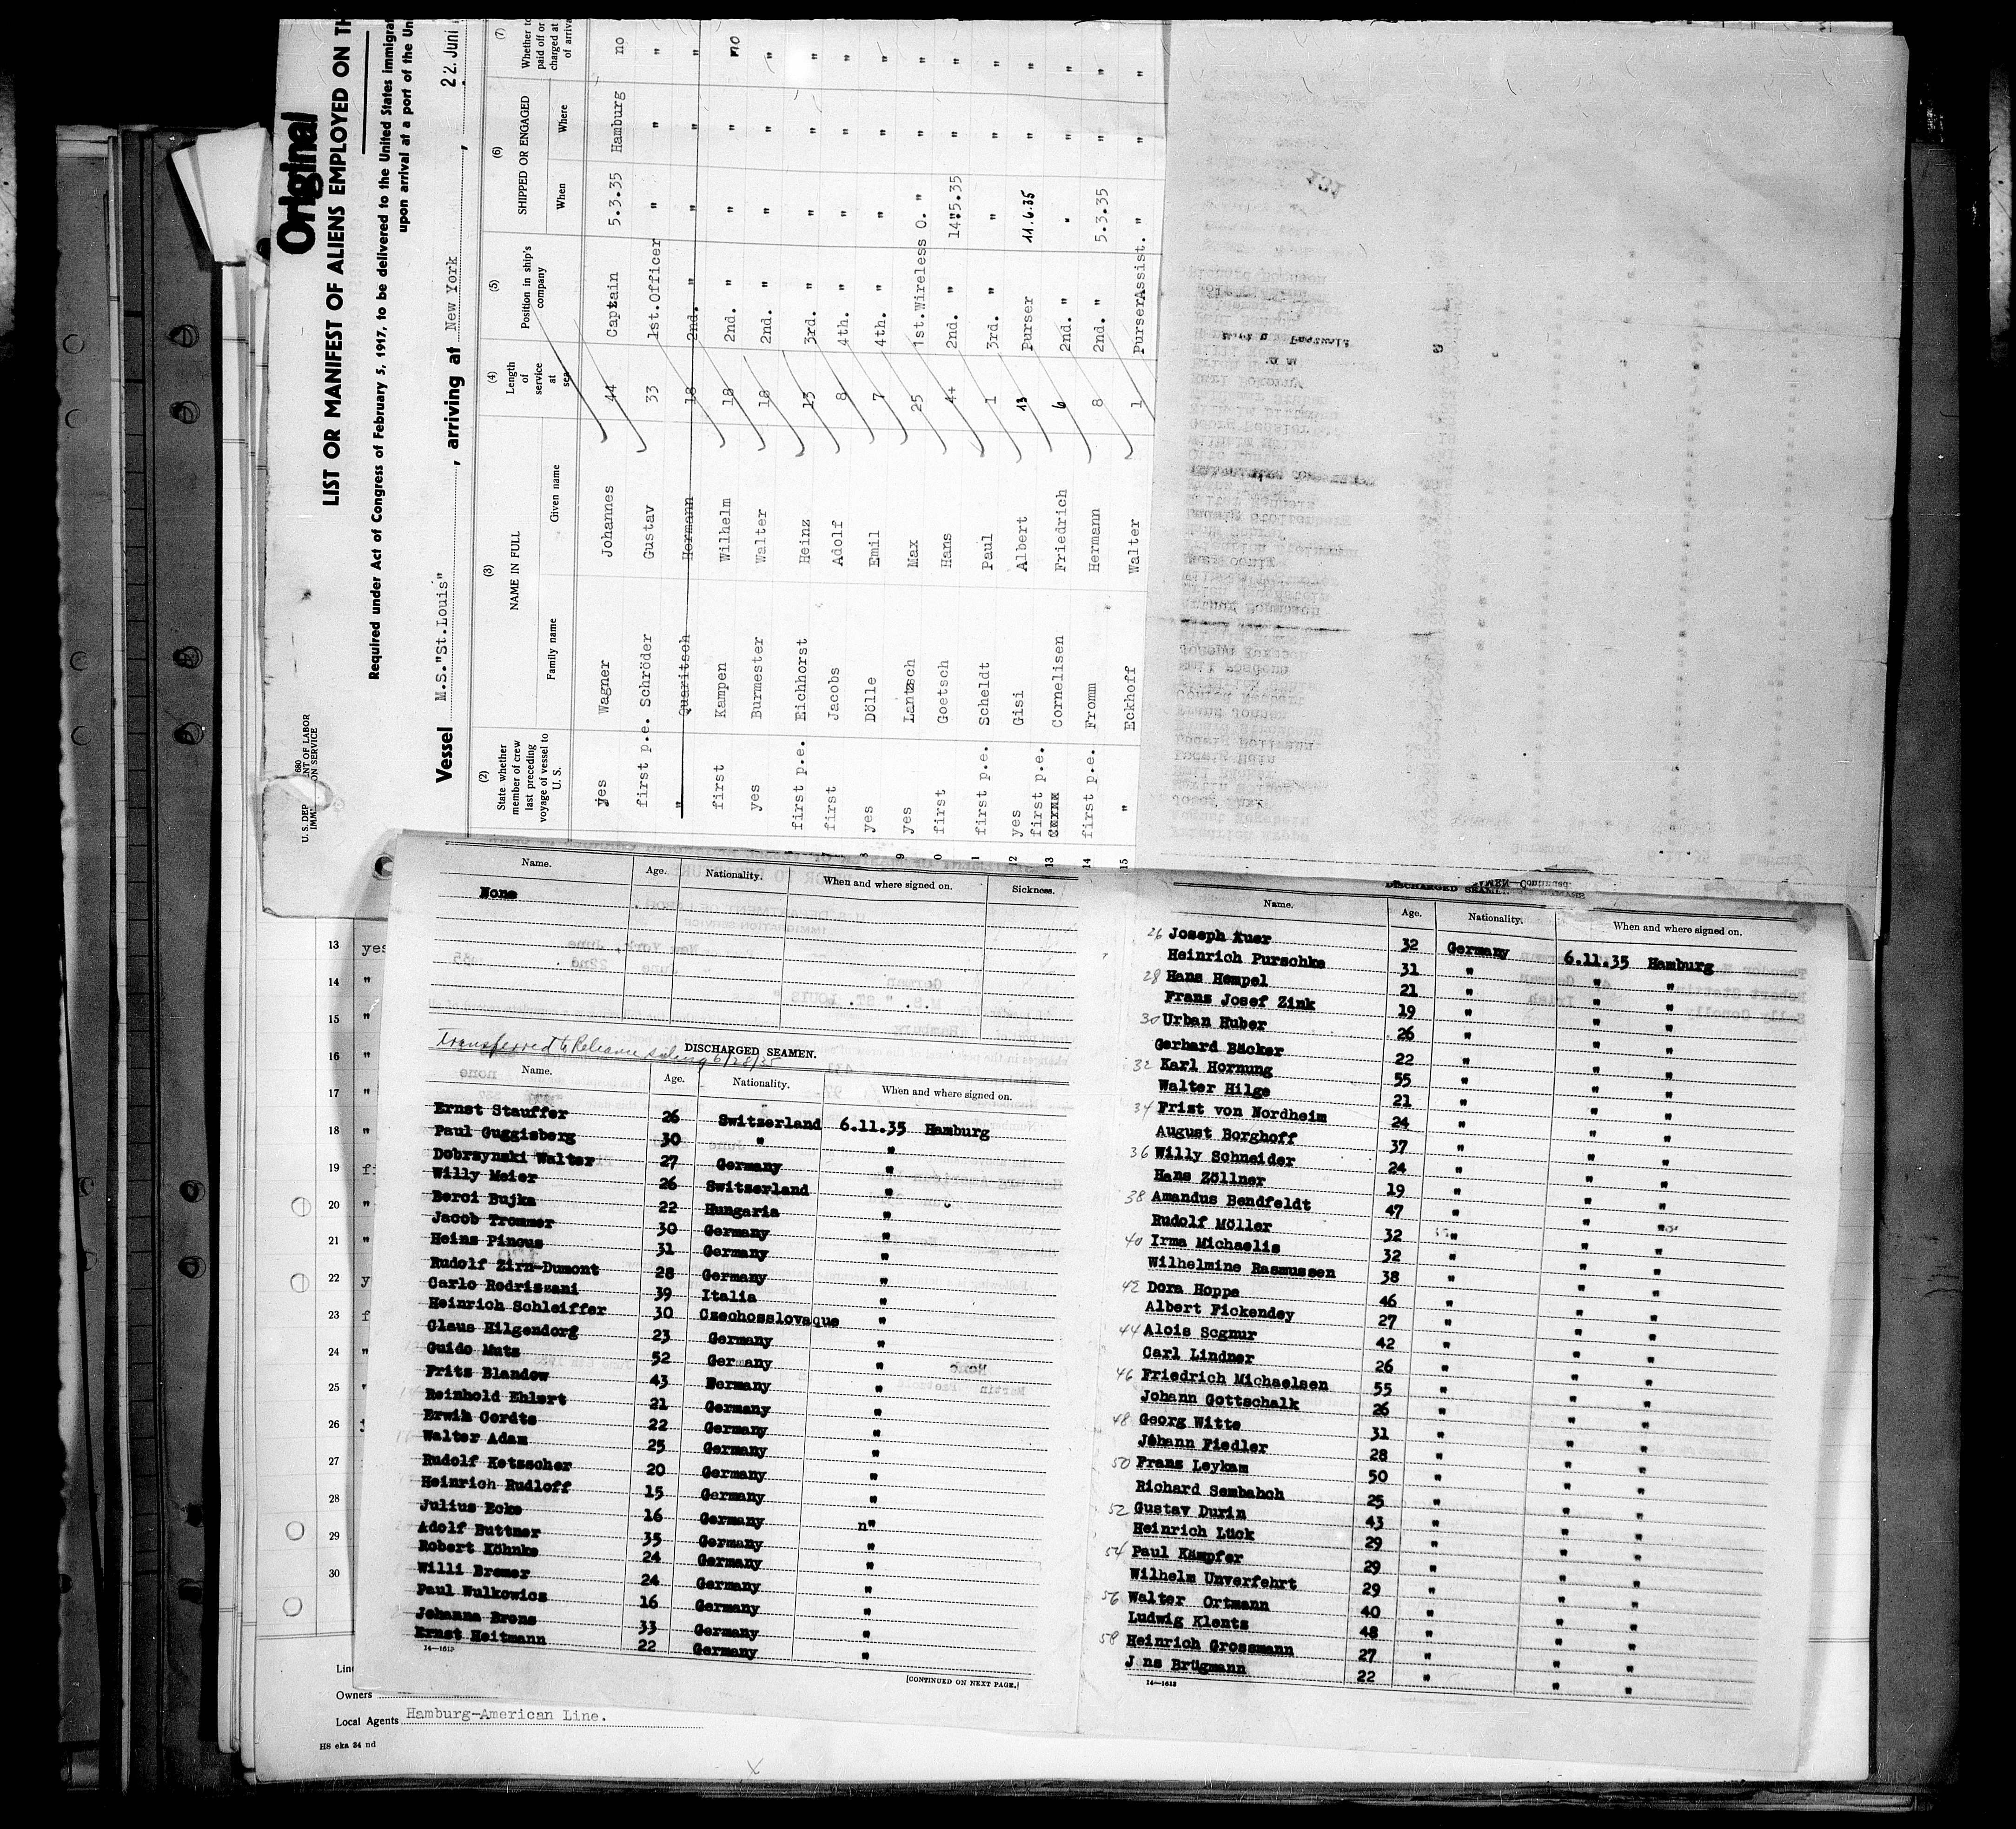 Original
LIST OR MANIFEST OF ALIENS EMPLOYED ON TH
Required under Act of Congress of February 5, 1917, to be delivered to the United States immigrat
upon arrival at a port of the Un
680
U. S. DEP NT OF LABOR
IMM ON SERVICE
Vessel M.S."St.Louis" , arriving at New York , 22.Juni
(2) (3) (4) (5) (6) (7)
State whether member of crew last preceding voyage of vessel to U. S.
NAME IN FULL
Family name Given name
Length of service at sea
Position in ship's company
SHIPPED OR ENGAGED
When Where
Whether to paid off or charged at of arriva
yes Wagner Johannes 44 Captain 5.3.35 Hamburg no
first p.e. Schröder Gustav 33 1st.Officer " " "
" Quaritsch Hermann 18 2nd. " " " "
first Kampen Wilhelm 18 2nd. " " " no
yes Burmester Walter 18 2nd. " " " "
first p.e. Eichhorst Heinz 13 3rd. " " " "
first Jacobs Adolf 8 4th. " " " "
8 yes Dölle Emil 7 4th. " " " "
9 yes Lantzsch Max 25 1st.Wireless O. " " "
0 first Goetsch Hans 4+ 2nd. " 14.5.35 " "
1 first p.e. Scheldt Paul 1 3rd. " " " "
12 yes Gisi Albert 13 Purser 11.6.35 " "
13 first p.e. Cornelisen Friedrich 6 2nd. " " " "
14 first p.e. Fromm Hermann 8 2nd. " 5.3.35 " "
15 " Eckhoff Walter 1 PurserAssist. " " "
Name. Age. Nationality. When and where signed on. Sickness.
None
Transferred to Reliance sailing 6/28/35
DISCHARGED SEAMEN.
Name. Age. Nationality. When and where signed on.
Ernst Stauffer 26 Switzerland 6.11.35 Hamburg
Paul Guggisberg 30 " "
Dobrzynski Walter 27 Germany "
Willy Meier 26 Switzerland "
Beroi Bujka 22 Hungaria "
Jacob Trommer 30 Germany "
Heinz Pincus 31 Germany "
Rudolf Zirn-Dumont 28 Germany "
Carlo Rodriszani 39 Italia "
Heinrich Schleiffer 30 Czechosslovaque "
Claus Hilgendorf 23 Germany "
Guido Mutz 52 Germany "
Fritz Blandow 43 Germany "
Reinhold Ehlert 21 Germany "
Erwin Cordts 22 Germany "
Walter Adam 25 Germany "
Rudolf Ketzscher 20 Germany "
Heinrich Rudloff 15 Germany "
Julius Ecke 16 Germany n"
Adolf Buttner 35 Germany "
Robert Köhnke 24 Germany "
Willi Bremer 24 Germany "
Paul Wulkowics 16 Germany "
Johanna Brons 33 Germany "
Ernst Heitmann 22 Germany "
14—1613
[CONTINUED ON NEXT PAGE.]
DISCHARGED SEAMEN—Continued
Name. Age. Nationality. When and where signed on.
26 Joseph Auer 32 Germany 6.11.35 Hamburg
Heinrich Purschke 31 " " "
28 Hans Hempel 21 " " "
Franz Josef Zink 19 " " "
30 Urban Huber 26 " " "
Gerhard Bäcker 22 " " "
32 Karl Hornung 55 " " "
Walter Hilge 21 " " "
34 Frist von Nordheim 24 " " "
August Borghoff 37 " " "
36 Willy Schneider 24 " " "
Hans Zöllner 19 " " "
38 Amandus Bendfeldt 47 " " "
Rudolf Möller 32 " " "
40 Irma Michaelis 32 " " "
Wilhelmine Rasmussen 38 " " "
42 Dora Hoppe 46 " " "
Albert Fickendey 27 " " "
44 Alois Sogmur 42 " " "
Carl Lindner 26 " " "
46 Friedrich Michaelsen 55 " " "
Johann Gottschalk 26 " " "
48 Georg Witte 31 " " "
Johann Fiedler 28 " " "
50 Franz Leykam 50 " " "
Richard Sembahch 25 " " "
52 Gustav Durin 43 " " "
Heinrich Lück 29 " " "
54 Paul Kämpfer 29 " " "
Wilhelm Unverfehrt 29 " " "
56 Walter Ortmann 40 " " "
Ludwig Klentz 48 " " "
58 Heinrich Grossmann 27 " " "
J ns Brügmann 22 " " "
14—1613
13 yes
14 "
15 "
16 "
17 "
18 "
19 fi
20 "
21 "
22 y
23 f
24 "
25 "
26
27
28
29
30
Lin
Owners
Local Agents Hamburg-American Line.
HS eka 34 nd